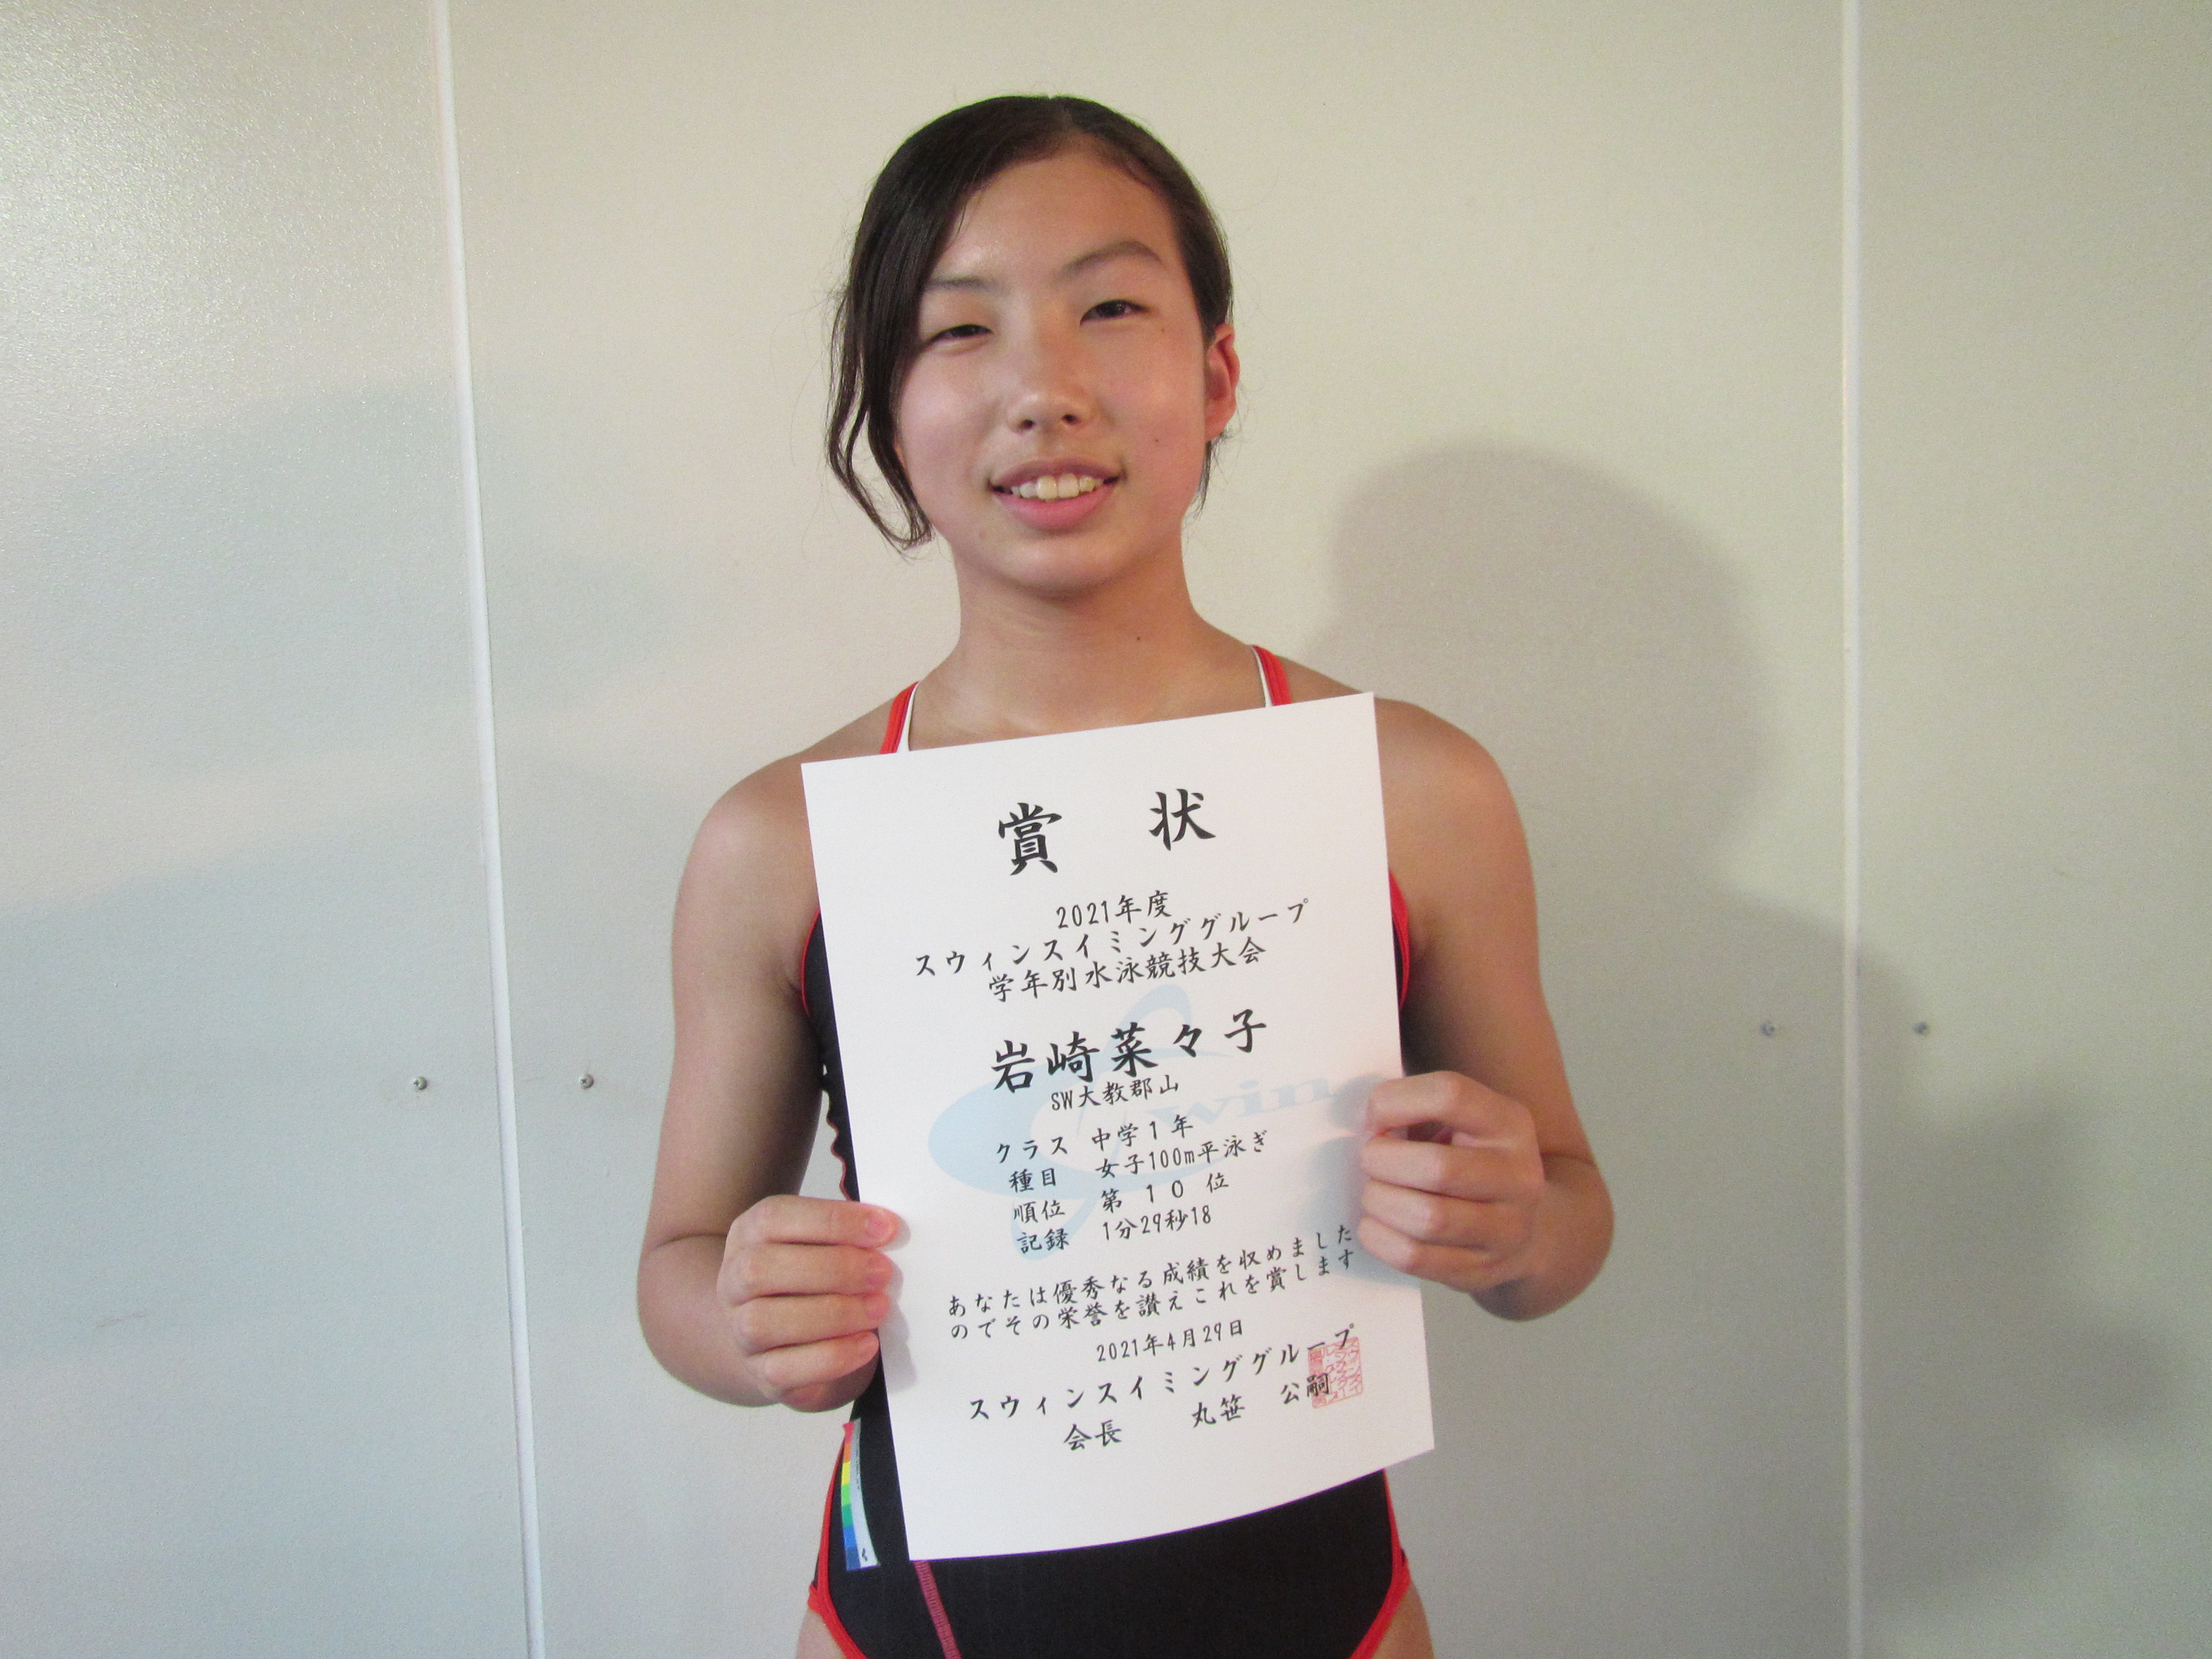 賞 状
2021年度
スウィンスイミンググループ
学年別水泳競技大会
岩崎菜々子
SW大教郡山
クラス 中学1年
種目 女子100m平泳ぎ
順位 第 10 位
記録 1分29秒18
あなたは優秀なる成績を収めました
のでその栄誉を讃えこれを賞します
2021年4月29日
スウィンスイミンググループ
会長 丸笹 公嗣
Swin